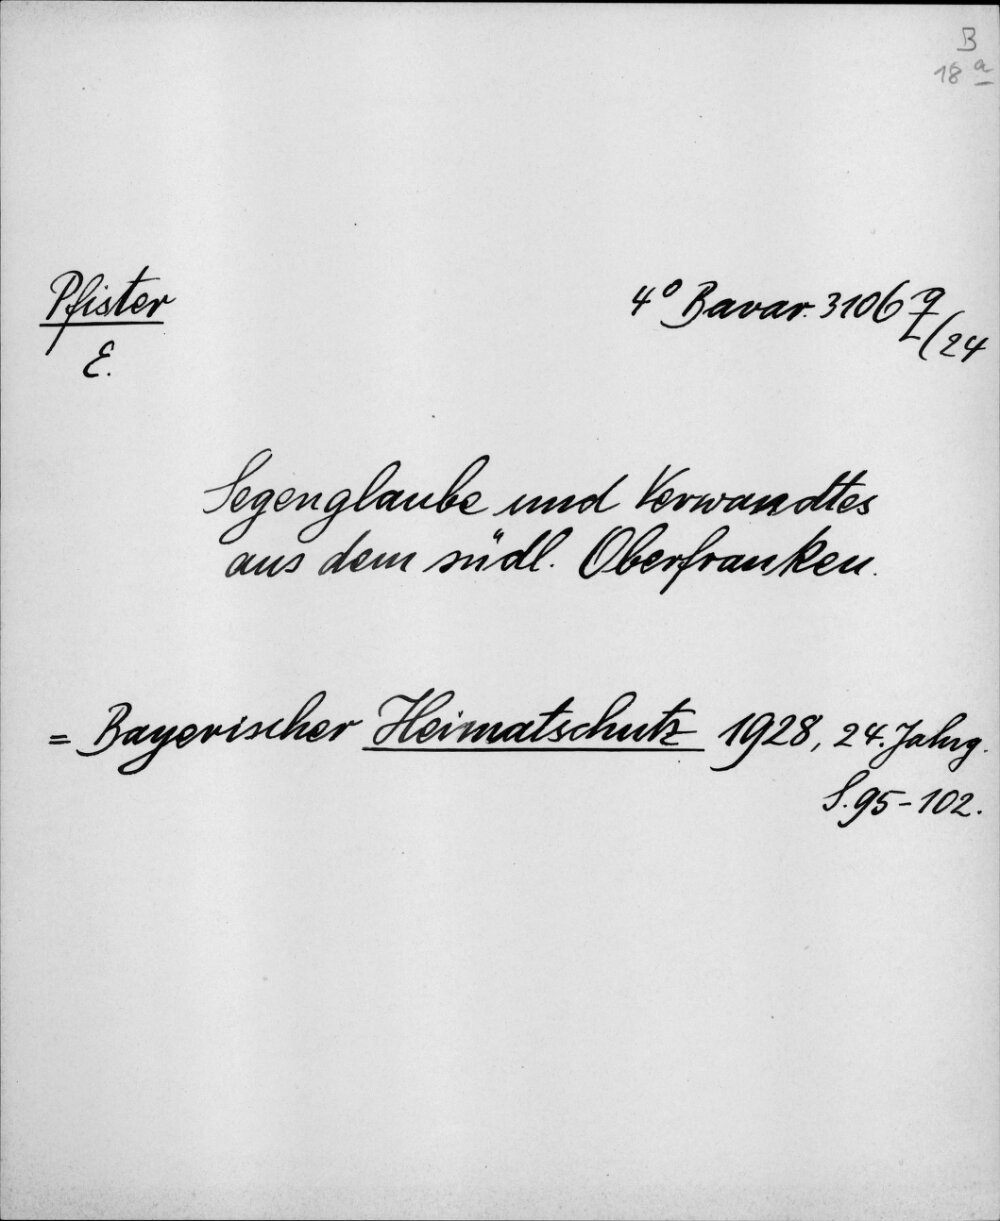 B
18 a
Pfister
E.
4° Bavar. 3106 q/(24
Segenglaube und Verwandtes
aus dem südl. Oberfranken.
= Bayerischer Heimatschutz 1928, 24. Jahrg.
S. 95-102.